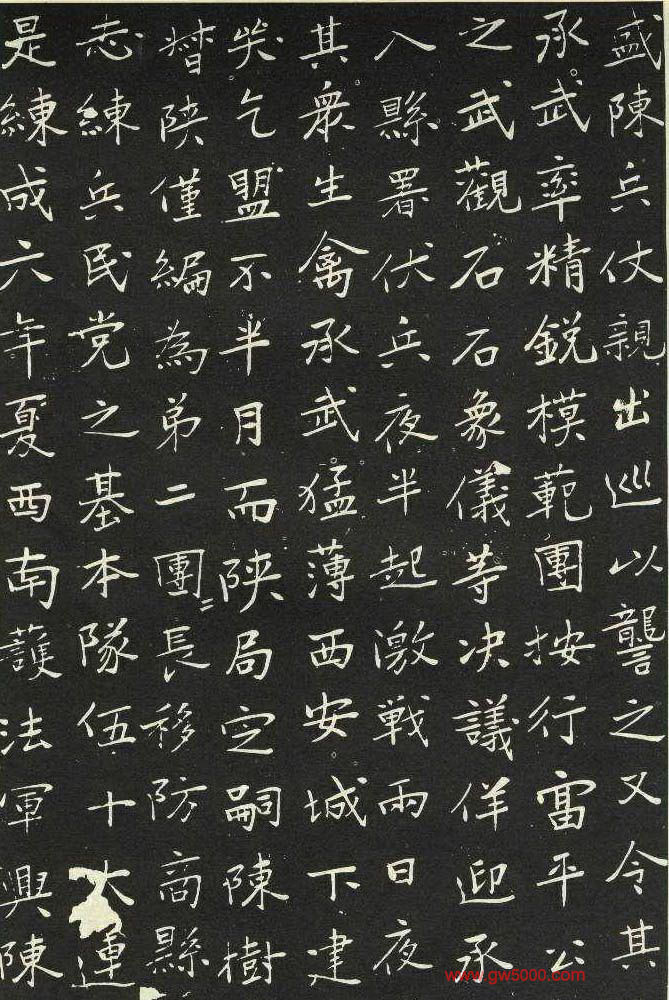 盛陳兵仗親出巡以讋之又令其
承武率精銳模範團按行富平公
之武觀石石象儀等决議佯迎承
入縣署伏兵夜半起激戰兩日夜
其衆生禽承武猛薄西安城下建
哭乞盟不半月而陝局定嗣陳樹
督陝僅編為弟二團〻長移防商縣
志練兵民党之基本隊伍十大連
是練成六年夏西南護法軍興陳
www.gw5000.com